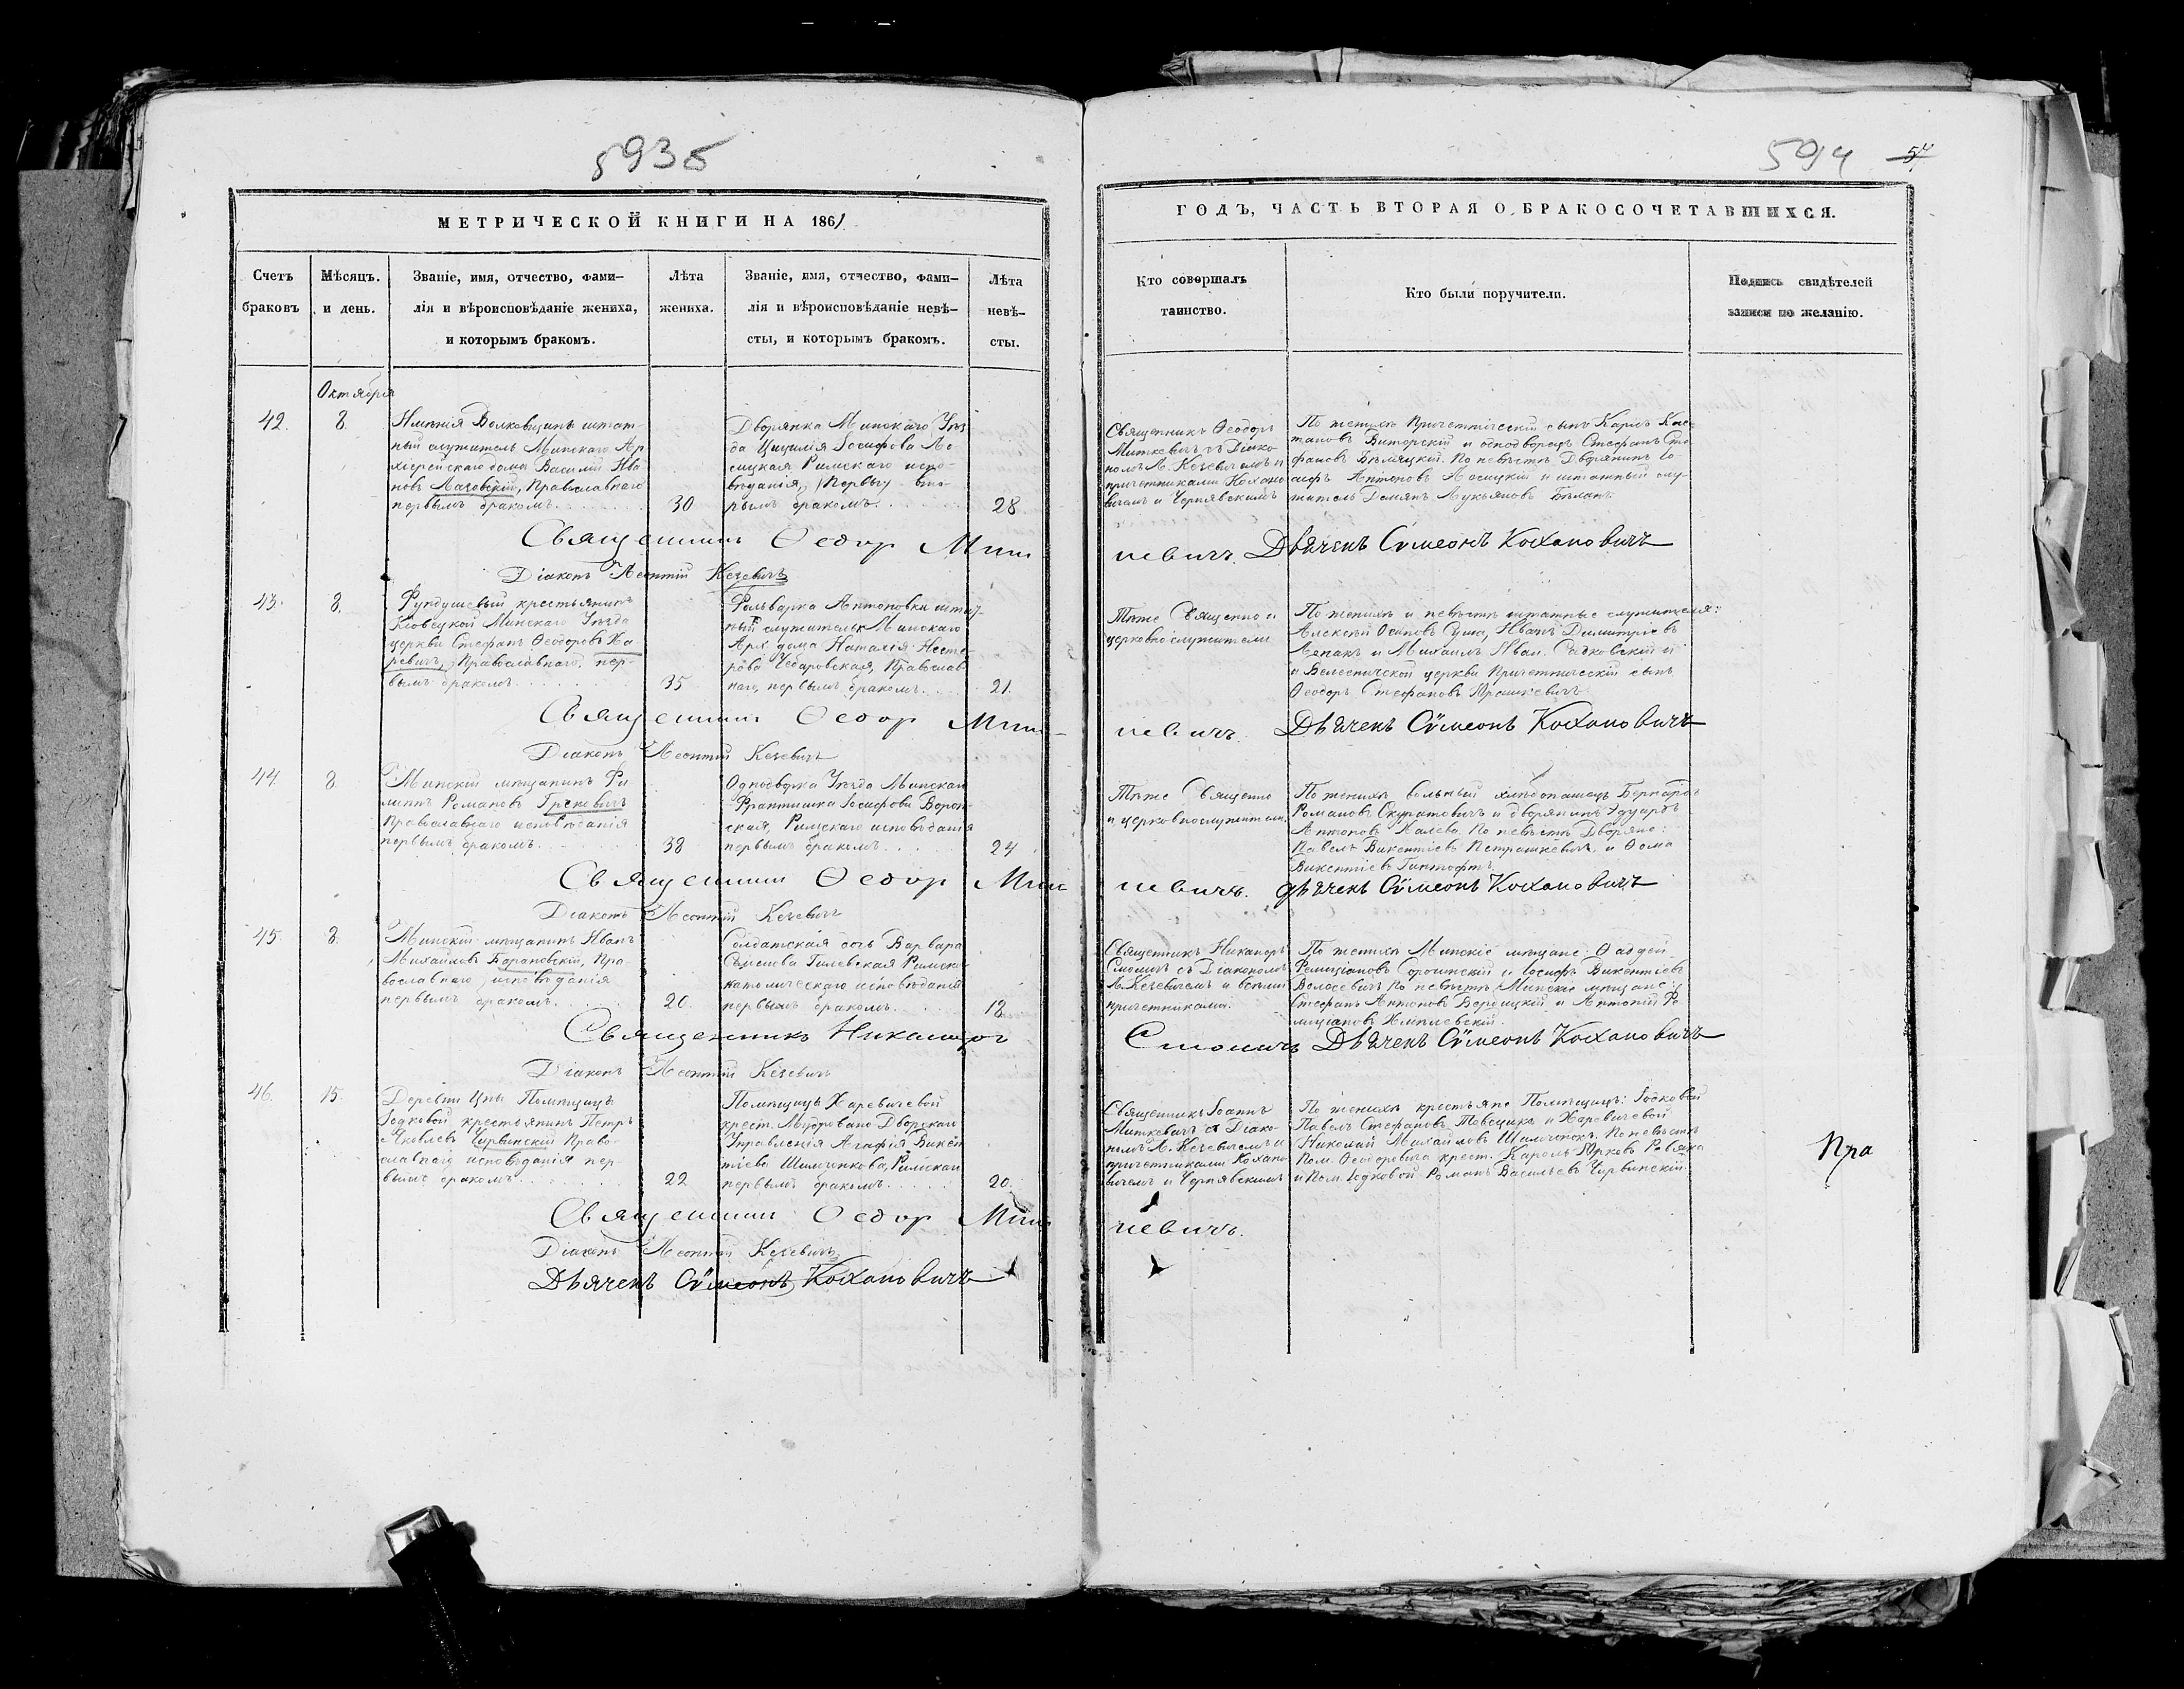 593б
594 57
МЕТРИЧЕСКОЙ КНИГИ НА 1861
ГОДЪ, ЧАСТЬ ВТОРАЯ О БРАКОСОЧЕТАВШИХСЯ.
Счетъ браковъ
Мѣсяцъ. и день.
Званіе, имя, отчество, фами-
лія и вѣроисповѣданіе жениха,
и которымъ бракомъ.
Лѣта жениха.
Званіе, имя, отчество, фами-
лія и вѣроисповѣданіе невѣ-
сты, и которымъ бракомъ.
Лѣта невѣ-
сты.
Кто совершалъ
таинство.
Кто были поручители.
Подпись свидѣтелей
записи по желанію.
Октября
42. 8.
Имѣнія Волковщинъ штат-
ный служитель Минскаго Ар
хіерейскаго дома Василій Ива
новъ Лазовскій, Православнаго
первымъ бракомъ
30
Дворянка Минскаго Уѣз
да Цецилія Іосифова
Римскаго испо-
вѣданія,
рымъ бракомъ.
28.
Священникъ Ѳеодоръ
Миткевичъ съ Діако-
номъ Л. Кезевичемъ и
причетниками Кохано
вичемъ и Чернявскимъ
По женихѣ Причетническій сынъ Карлъ
и однодворецъ Стефанъ Сте
фановъ По невѣстѣ Дворянинъ Іо-
сифъ Антоновъ и штатный слу-
житель Демьянъ Лукьяновъ
Священникъ Ѳеодор Мит
кевичъ. Дьячекъ Сѵмеонъ Кохановичъ
Діаконъ Леонтій Кезевичъ
43. 8.
Фундушевый крестьянинъ
Минскаго Уѣзда
церкви Стефанъ Ѳеодоровъ Ха
ревичъ, Православнаго, пер-
вымъ бракомъ
35
Фольварка Антоновки штат
ный служитель Минскаго
Арх. дома Наталія Несте-
рова Чеваровская, Православ
наго, первымъ бракомъ
21.
Тѣже Священно и
церковнослужители
По женихѣ и невѣстѣ штатные служителя:
Алексѣй Осиповъ Иванъ Димитріевъ
Лепакъ и Михаилъ Иван. Садковскій и
церкви Причетническій сынъ
Ѳеодоръ Стефановъ Ярошкевичъ
Священникъ Ѳеодор Мит-
кевичъ. Дьячекъ Сѵмеонъ Кохановичъ
Діаконъ Леонтій Кезевичъ
44. 8.
Минскій мѣщанинъ Фи
липпъ Романовъ Грековичъ
Православнаго исповѣданія
первымъ бракомъ
38
Однодворка Уѣзда Минскаго
Франтишка Іосифова Ворон-
ская, Римскаго исповѣданія
первымъ бракомъ
24
Тѣже Священно
и церковнослужители.
По женихѣ вольный хлѣбопашецъ Бернардъ
Романовъ и дворянинъ Эдуардъ
Антоновъ По невѣстѣ Дворяне:
Павелъ Викентіевъ Петрашкевичъ и Ѳома
Викентіевъ Гинтофтъ
Священникъ Ѳеодор Мит
кевичъ. Дьячекъ Сѵмеонъ Кохановичъ
Діаконъ Леонтій Кезевичъ
45. 8.
Минскій мѣщанинъ Иванъ
Михайловъ Барановскій, Пра-
вославнаго исповѣданія
первымъ бракомъ
20.
Солдатская дочь Варвара
Гилевская Римско-
католическаго исповѣданія
первымъ бракомъ
18
Священникъ Никаноръ
Смоличъ съ Діакономъ
Л. Кезевичемъ и всѣми
причетниками.
По женихѣ Минскіе мѣщане: Ѳаддей
и Іосифъ Викентіевъ
По невѣстѣ Минскіе мѣщане:
Стефанъ Антоновъ и Антоній Фе
лиціановъ
Священникъ Никаноръ
Смоличъ Дьячекъ Сѵмеонъ Кохановичъ
Діаконъ Леонтій Кезевичъ
46. 15.
Деревни Цны Помѣщицы
Іодковой крестьянинъ Петръ
Яковлевъ Чирвинскій Право-
славнаго исповѣданія пер-
вымъ бракомъ
22
Помѣщицы Харевичевой
крест.
Управленія Агафія Викен
тіева Шимченкова, Римскаго
первымъ бракомъ
20.
Священникъ Іоаннъ
Миткевичъ съ Діако-
номъ Л. Кезевичемъ и
причетниками Кохано
вичемъ и Чернявскимъ
По женихѣ крестьяне Помѣщицъ: Іодковой
Павелъ Стефановъ и Харевичевой
Николай Михайловъ Шимченокъ. По невѣстѣ
Пом. Ѳеодоровича крест. Карелъ Юрковъ
и Пом. Іодковой Романъ Васильевъ Чирвинскій.
Пра
Священникъ Ѳеодор Мит
кевичъ.
Діаконъ Леонтій Кезевичъ
Дьячекъ Сѵмеонъ Кохановичъ